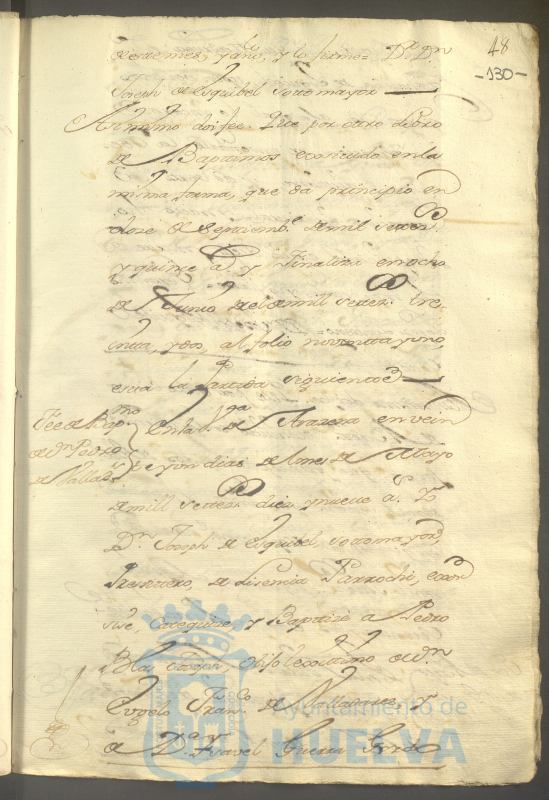 48
-130-
de este mes, y año, y lo firmo = Dr. Dn
Joseph de Esquibel Sotomayor
Asimismo doi fee. Que por otro Libro
de Baptismos econtenido en la
misma forma, que da principio en
doze de Septiemb.e de mil seten.
y quinze a.s y finaliza en ocho
de Junio de el de mill setez. tre-
inta, y dos, al folio noventa y uno,
está la partida siguiente
Fee de Bap.mo
de Dn Pedro
de Vallad.s
En la V.a de Arazena en vein
te y un dias de el mes de Mayo
de mill setez. diez y nueve a.s Yo
Dn Joseph de Esquibel, Sotomayor,
Presvitero, de Lizencia Parrochi, exor
sisé, catequizé, y Baptizé a Pedro
Blas Joseph, hijo lexitimo de Dn
Eugenio Fran.co de Valladares, y
de D.a Ysavel Guerra
Ayuntamiento de
HUELVA